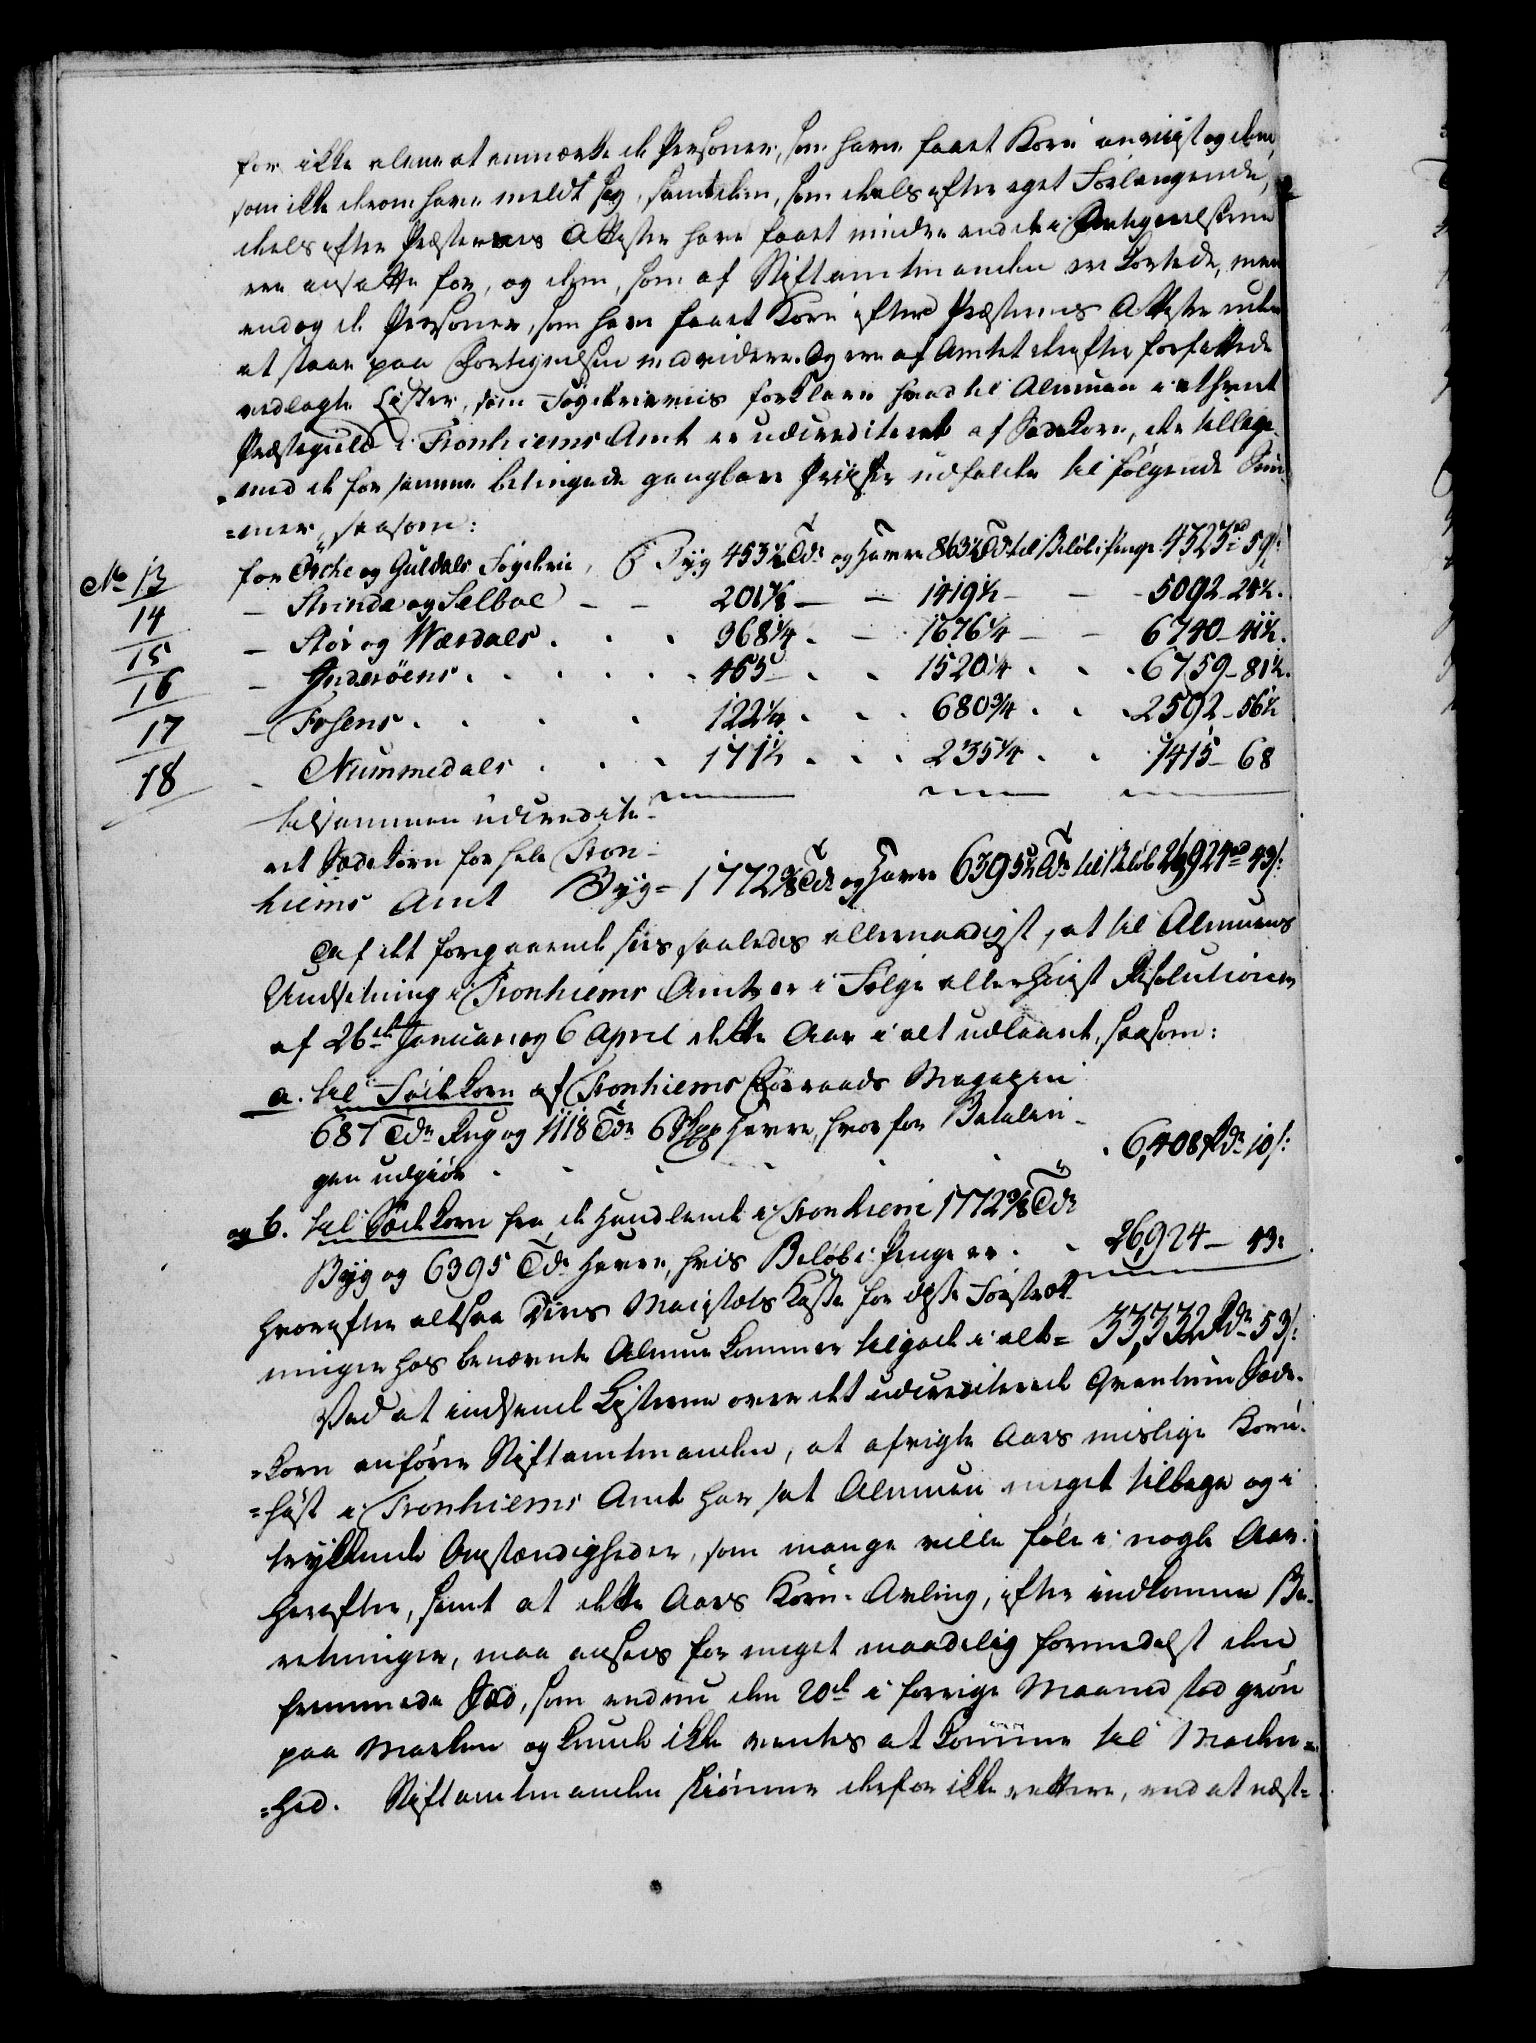 for ikke alene at anmærke de Personer, som have faaet Korn anviist og dem,
som ikke derom have meldt sig, samt dem, som deels efter eget Forlangende,
deels efter Præsternes Attester have faaet mindre end de i Fortegnelserne
ere ansatte for, og dem, som af Stiftamtmanden ere kortede, men
endog de Personer, som have faaet Korn efter Præsternes Attester uden
at staae paa Fortegnelsen med videre. Og ere af Amtet derefter forfattede
vedlagte Lister, som Fogderieviis forklare hvad til Almuen i ethvert
Præstegield i Tronhiems Amt er udcrediteret af Sædekorn, der tillige
med de for samme betingede gangbare Priiser udfalder til følgende Sum-
=mer, saasom:
No 13 for Orke og Guldals Fogderie, Byg 453½ Tdr og Havre 863½ Tdr til Beløb i Penge 4323 rd 59 s:
14 – Strinde og Selboe – – 201⅞ – – 1419½ – – 5092 – 24½.
15 – Stør og Værdals . . . 368¼ . – 1676¼ – – 6740 – 41½.
16 – Inderøens . . . . . . 455 . . 1520¼ . . . 6759 – 81½.
17 – Fosens . . . . 122¼ . . . 680¾ . . . 2592 – 56½
18 – Nummedals . . . 171½ . . . 235¼ . . 1415 – 68
tilsammen udcredite-
ret Sædekorn for hele Tron-
hiems Amt Byg = 1772⅜ Tdr og Havre 6395½ Tdr til Beløb 26924 rd 43 s:
Af det foregaaende sees saaledes allernaadigst, at til Almuens
Undsetning i Tronhiems Amt er i Følge allerhøist Resolutioner
af 26de Januar og 6 April dette Aar i alt udlaant, saasom:
a. til Fødekorn af Tronhiems Forraads Magazin
687 Tdr Rug og 1118 Tdr 6 Skpr Havre, hvorfor Betalin-
gen udgiør . . . . . . . 6,408 Rdr 10 s:
og b. til Sædekorn fra de Handlende i Tronhiem 1772⅜ Tdr
Byg og 6395 Tdr Havre, hvis Beløb i Penge er . . 26,924 – 43.
hvorefter altsaa Deres Majestæts Kasse for disse Forstræk-
ninger hos benævnte Almue kommer tilgode i alt = 33,332 Rdr 53 s:
Ved at indsende Listerne over det udcrediterede Qvantum Sæde-
=korn anfører Stiftamtmanden, at afvigte Aars mislige Korn-
=høst i Tronhiems Amt har sat Almuen meget tilbage og i
trykkende Omstændigheder, som mange ville føle i nogle Aar
herefter, samt at dette Aars Korn-Avling, efter indkomne Be-
retninger, maa ansees for meget maadelig formedelst den
fremmede Sæd, som endnu den 20de i forrige Maaned stod grøn
paa Marken og kunde ikke ventes at komme til Moden-
=hed. Stiftamtmanden skiønner derfor ikke rettere, end at næst=